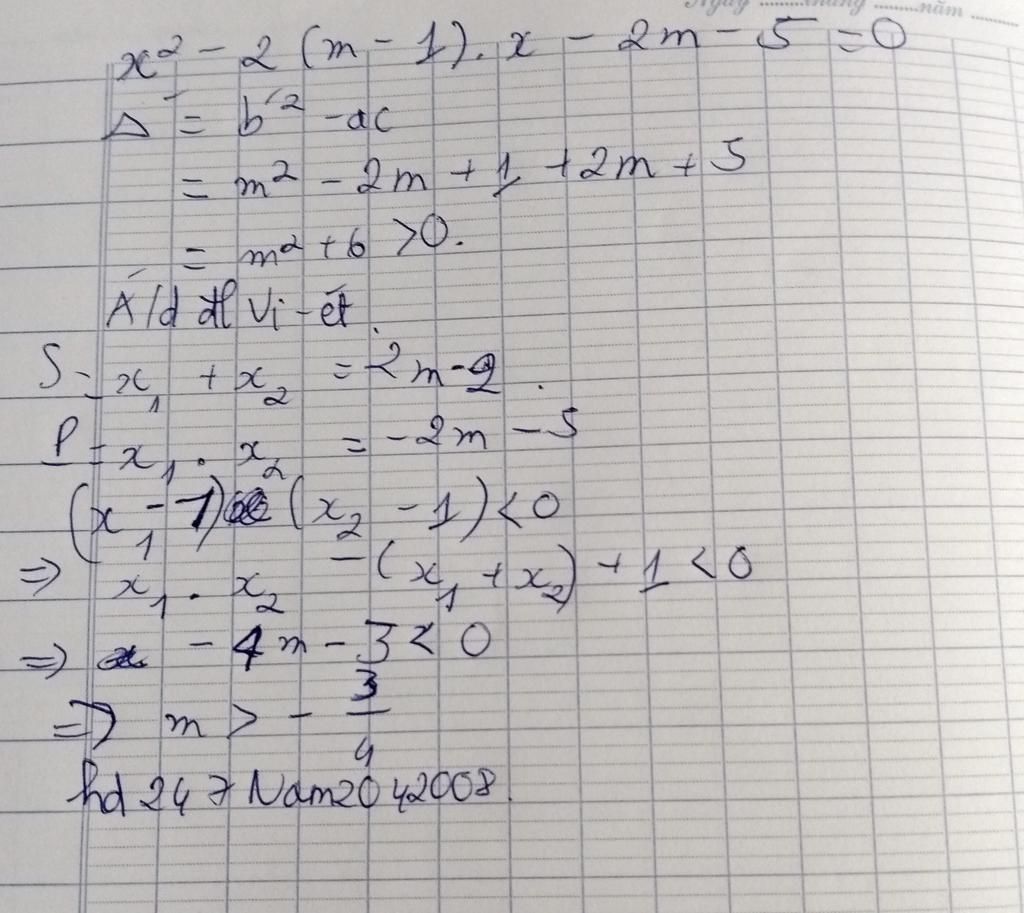 Ngày ......... tháng ......... năm .........
x² - 2(m - 1). x - 2m - 5 = 0
Δ' = b'² - ac
= m² - 2m + 1 + 2m + 5
= m² + 6 > 0.
Á/d đl Vi-ét.
S = x₁ + x₂ = 2m - 2.
P = x₁ . x₂ = -2m - 5
(x₁ - 1) (x₂ - 1) < 0
=> x₁ . x₂ - (x₁ + x₂) + 1 < 0
=> - 4m - 3 < 0
=> m > - 3/4
hd 247 Nam2042008.